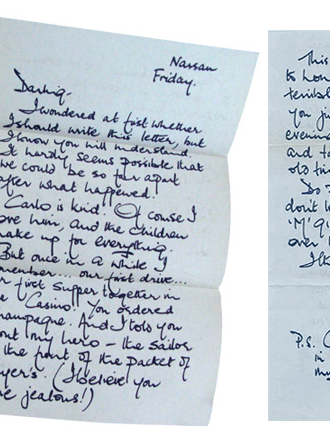 Nassau
Friday.
Darling-
I wondered at first whether
I should write this letter, but
I know you will understand.
It hardly seems possible that
we could be so far apart
after what happened.
Carlo is kind. Of course I
ove him, and the children
ake up for everything.
But once in a while I
member... our first drive...
r first supper together in
e Casino. You ordered
hampagne. And I told you
out my hero - the sailor
the front of the packet of
yer's. (I believe you
e jealous!)
This
to Lon
terribl
you ju
evenin
and t
old ti
Do
don't
'M'
over
I th
P.S. C
in
thi